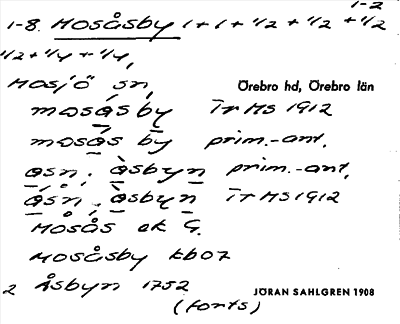 1-2
1-8. Mosåsby 1+1+1/2+1/2+1/2
1/2+1/4+1/4,
Mosjö sn, Örebro hd, Örebro län
mosås by Tr Ms 1912
mosås by prim.-ant.
åsn, åsbyn prim.-ant.
åsn, åsbyn Tr Ms 1912
Mosås ek G.
Mosåsby kb07
2 Åsbyn 1752
(forts) JÖRAN SAHLGREN 1908